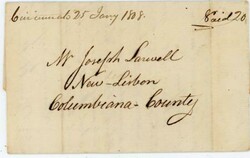 Cincinnati 25 Jany 1808. Paid 20
Mr Joseph
New-Lisbon
Columbiana-County